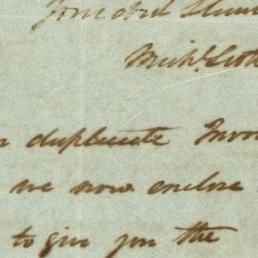 Your Obd Serv
Mich. Scott
duplicate Invo
we now enclose
to give you the